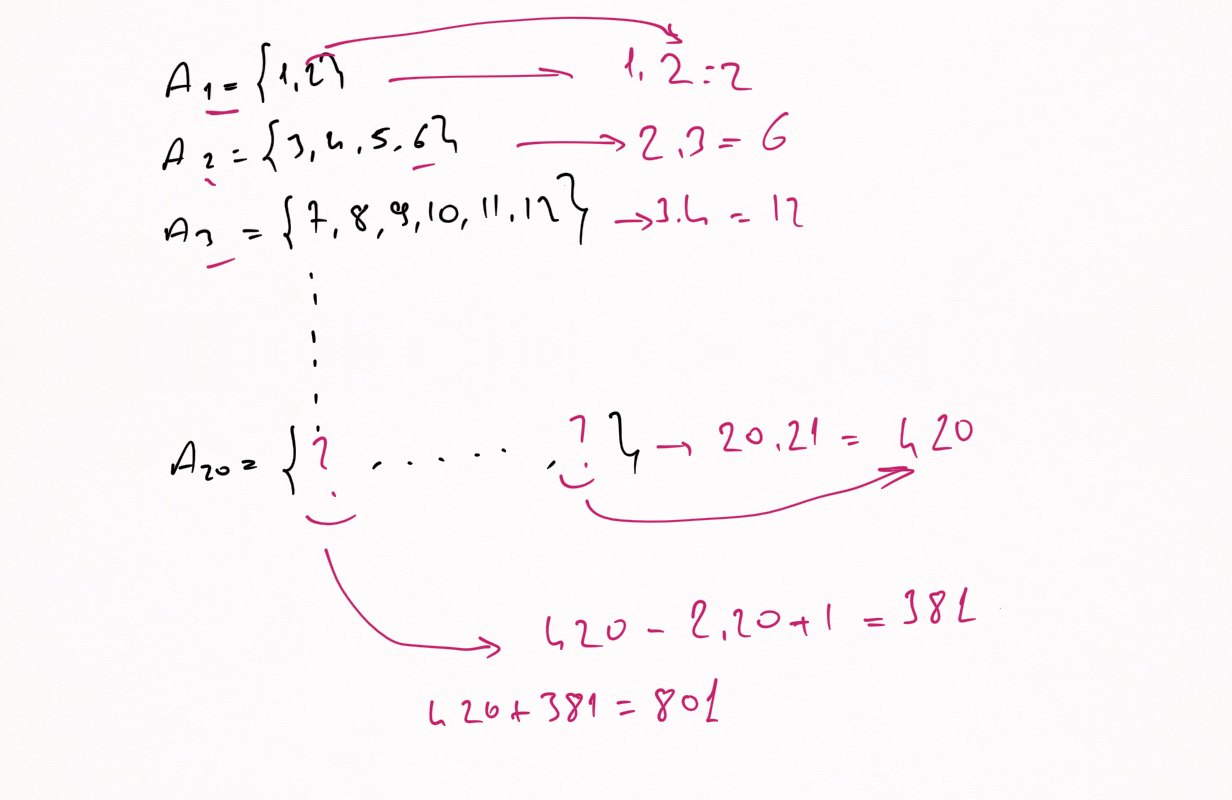 A₁ = {1,2} → 1.2=2
A₂ = {3,4,5,6} → 2.3 = 6
A₃ = {7,8,9,10,11,12} → 3.4 = 12
A₂₀ = {? , . . . . . , ?} → 20.21 = 420
420 - 2.20+1 = 381
420+381 = 801